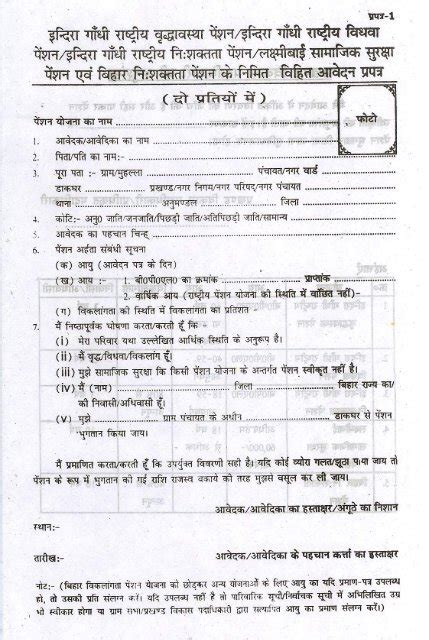 प्रपत्र-1
इन्दिरा गाँधी राष्ट्रीय वृद्धावस्था पेंशन/इन्दिरा गाँधी राष्ट्रीय विधवा
पेंशन/इन्दिरा गाँधी राष्ट्रीय निःशक्तता पेंशन/लक्ष्मीबाई सामाजिक सुरक्षा
पेंशन एवं बिहार निःशक्तता पेंशन के निमित विहित आवेदन प्रपत्र
(दो प्रतियों में)
फोटो
पेंशन योजना का नाम
1. आवेदक/आवेदिका का नाम
2. पिता/पति का नाम:-
3. पूरा पता :- ग्राम/मुहल्ला पंचायत/नगर वार्ड
डाकघर प्रखण्ड/नगर निगम/नगर परिषद्/नगर पंचायत
थाना अनुमण्डल जिला
4. कोटि:- अनु0 जाति/जनजाति/पिछड़ी जाति/अतिपिछड़ी जाति/सामान्य
5. आवेदक का पहचान चिन्ह्
6. पेंशन अर्हता संबंधी सूचना
(क) आयु (आवेदन पत्र के दिन)
(ख) आय : 1. बी0पी0एल0 का क्रमांक प्राप्तांक
2. वार्षिक आय (राष्ट्रीय पेंशन योजना की स्थिति में वांछित नहीं)-
(ग) विकलांगता की स्थिति में विकलांगता का प्रतिशत
7. मैं निष्ठापूर्वक घोषणा करता/करती हूँ कि
(i) मेरा परिवार यथा उल्लेखित आर्थिक स्थिति के अनुरूप है।
(ii) मैं वृद्ध/विधवा/विकलांग हूँ।
(iii) मुझे सामाजिक सुरक्षा कि किसी पेंशन योजना के अन्तर्गत पेंशन स्वीकृत नहीं है।
(iv) मैं (नाम) जिला बिहार राज्य का/
की निवासी/अधिवासी हूँ।
(v) मुझे ग्राम पंचायत के अधीन डाकघर से पेंशन
भुगतान किया जाय।
मैं प्रमाणित करता/करती हूँ कि उपर्युक्त विवरणी सही है। यदि कोई व्योरा गलत/झूठा पाया जाय तो
पेंशन के रूप में भुगतान की गई राशि राजस्व बकाये की तरह मुझसे वसूल कर ली जाय।
आवेदक/आवेदिका का हस्ताक्षर/अंगूठे का निशान
स्थान:-
तारीख:- आवेदक/आवेदिका के पहचान कर्त्ता का हस्ताक्षर
नोट:- (बिहार विकलांगता पेंशन योजना को छोड़कर अन्य योजनाओं के लिए आयु का यदि प्रमाण-पत्र उपलब्ध
हो, तो उसको प्रति संलग्न करें। यदि उपलब्ध नहीं है तो पारिवारिक सूची/निर्वाचक सूची में अभिलिखित उम्र
भी स्वीकार होगा या ग्राम सभा/प्रखण्ड विकास पदाधिकारी द्वारा सत्यापित आयु का प्रमाण संलग्न करें।)